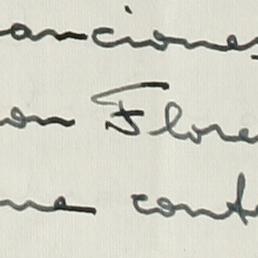 anciones
on Flore
ne cont